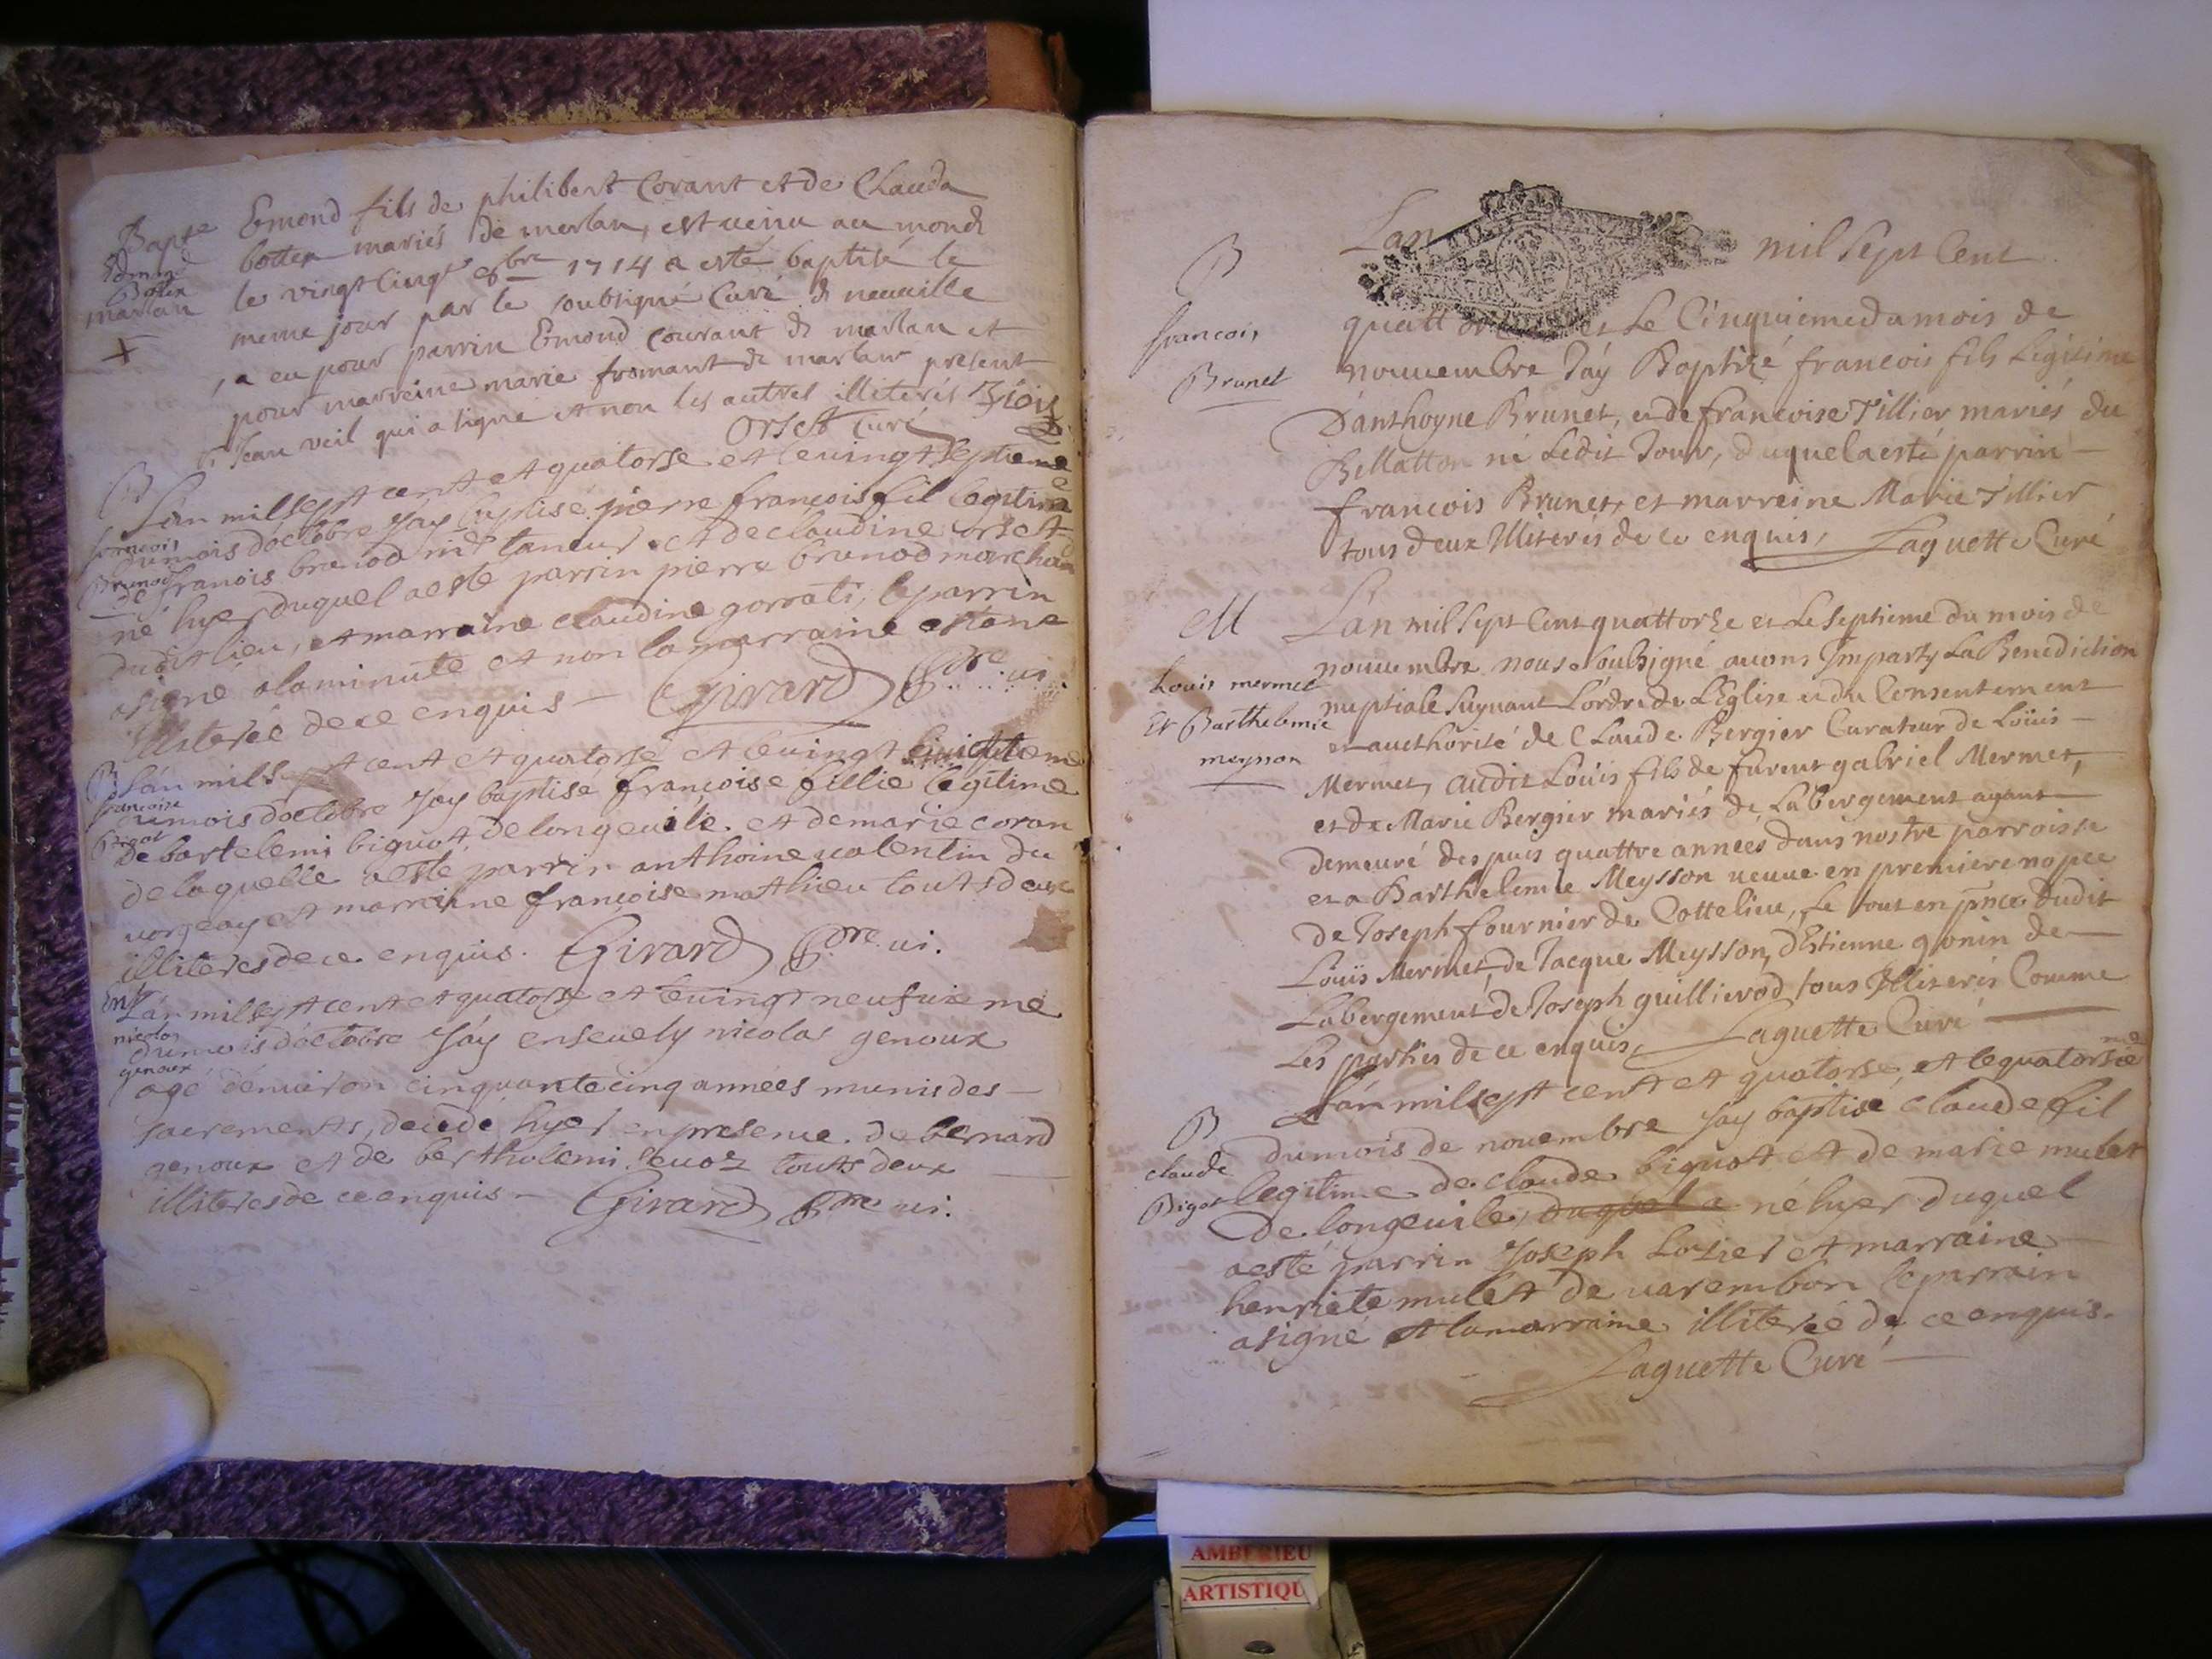 Bapte
Edmond
Botex
marlan
Emond fils de philibert Corant et de Clauda
bottex mariés de merlan, est venu au monde
le vingt Cinqe 8bre 1714 a esté baptisé le
meme jour par le soubsigné Curé de neuville
, a eu pour parrin Emond Courant de marlan et
pour marreine marie fromant de marlan present
Sr Jean veil qui a signé et non les autres illiterés
Orset Curé
B
francois
Brunod
Lan mil sept cent et quatorse et le vingt septieme
du mois doctobre Jay baptisé pierre francois fil legitime
de franois brenod md taneur et de claudine orset
né hyer duquel a esté parrin pierre brunod marchan
dudit lieu, et marraine claudine gorrati, le parrin
a signé a la minute et non la marraine estant
illiterée de ce enquis Girard Ptre vi.
B
francoise
Bigot
Lán mil sept cent et quatorse et le vingt huictieme
du mois doctobre Jay baptisé françoise fillie legitime
de bartelemi biguot de longevile et de marie coran
de laquelle a esté parrin anthoine valentin du
vorgeay et marraine françoise mathieu touts deux
illiteres de ce enquis. Girard Ptre vi.
mt
nicolas
genoux
Lán mil sept cent et quatorse et le vingt neufvieme
du mois doctobre Jáy ensevely nicolas genoux
agé dénviron cinquante cinq années munis des
sacrements, decedé hyer en presence de bernard
genoux et de bertholemi touts deux
illiteres de ce enquis Girard Ptre vi.
B
francois
Brunet
Lan mil Sept Cent
quattorze et Le Cinquieme du mois de
nouuembre Jáy Baptizé francois fils Legitime
D'anthoyne Brunet, et de francoise Tillier mariés du
Bellatton né Ledit Jour, duquel a esté parrin
francois Brunet, et marreine Marie Tillier
tous deux Illiterés de ce enquis, Laguette Curé
M
Louis mermet
Et Barthelemie
meysson
L'an mil Sept Cent quattorze et Le Septieme du mois de
nouuembre nous Soubsigné auons Imparty La Benediction
nuptiale Suyuant L'ordre de L'Eglise et du Consentement
et aucthorité de Claude Bergier Curateur de Loüis
Mermet, audit Loüis fils de furent gabriel Mermet,
et de Marie Bergier mariés de Labergement ayant
demeuré despuis quattre années dans nostre parroisse
et a Barthelemie Meysson veuue en premiere nopce
de Joseph fournier de Cottelieu, Le tout en pnce dudit
Loüis Mermet, de Jacque Meysson, d'Estienne gonin de
Labergement de Joseph guillierod tous Illiterés Comme
Les parties de ce enquis, Laguette Curé
B
claude
Bigot
Lán mil sept cent et quatorse, et le quatorsieme
du mois de novembre Jay baptisé claude fil
legitime de claude biguot et de marie mulet
de longevile, duquel a né hyer duquel
a esté parrin Joseph Losier et marraine
henriete mulet de varembon le parrain
a signé et la marraine illiterée de ce enquis.
Laguette Curé
AMBERIEU
ARTISTIQU